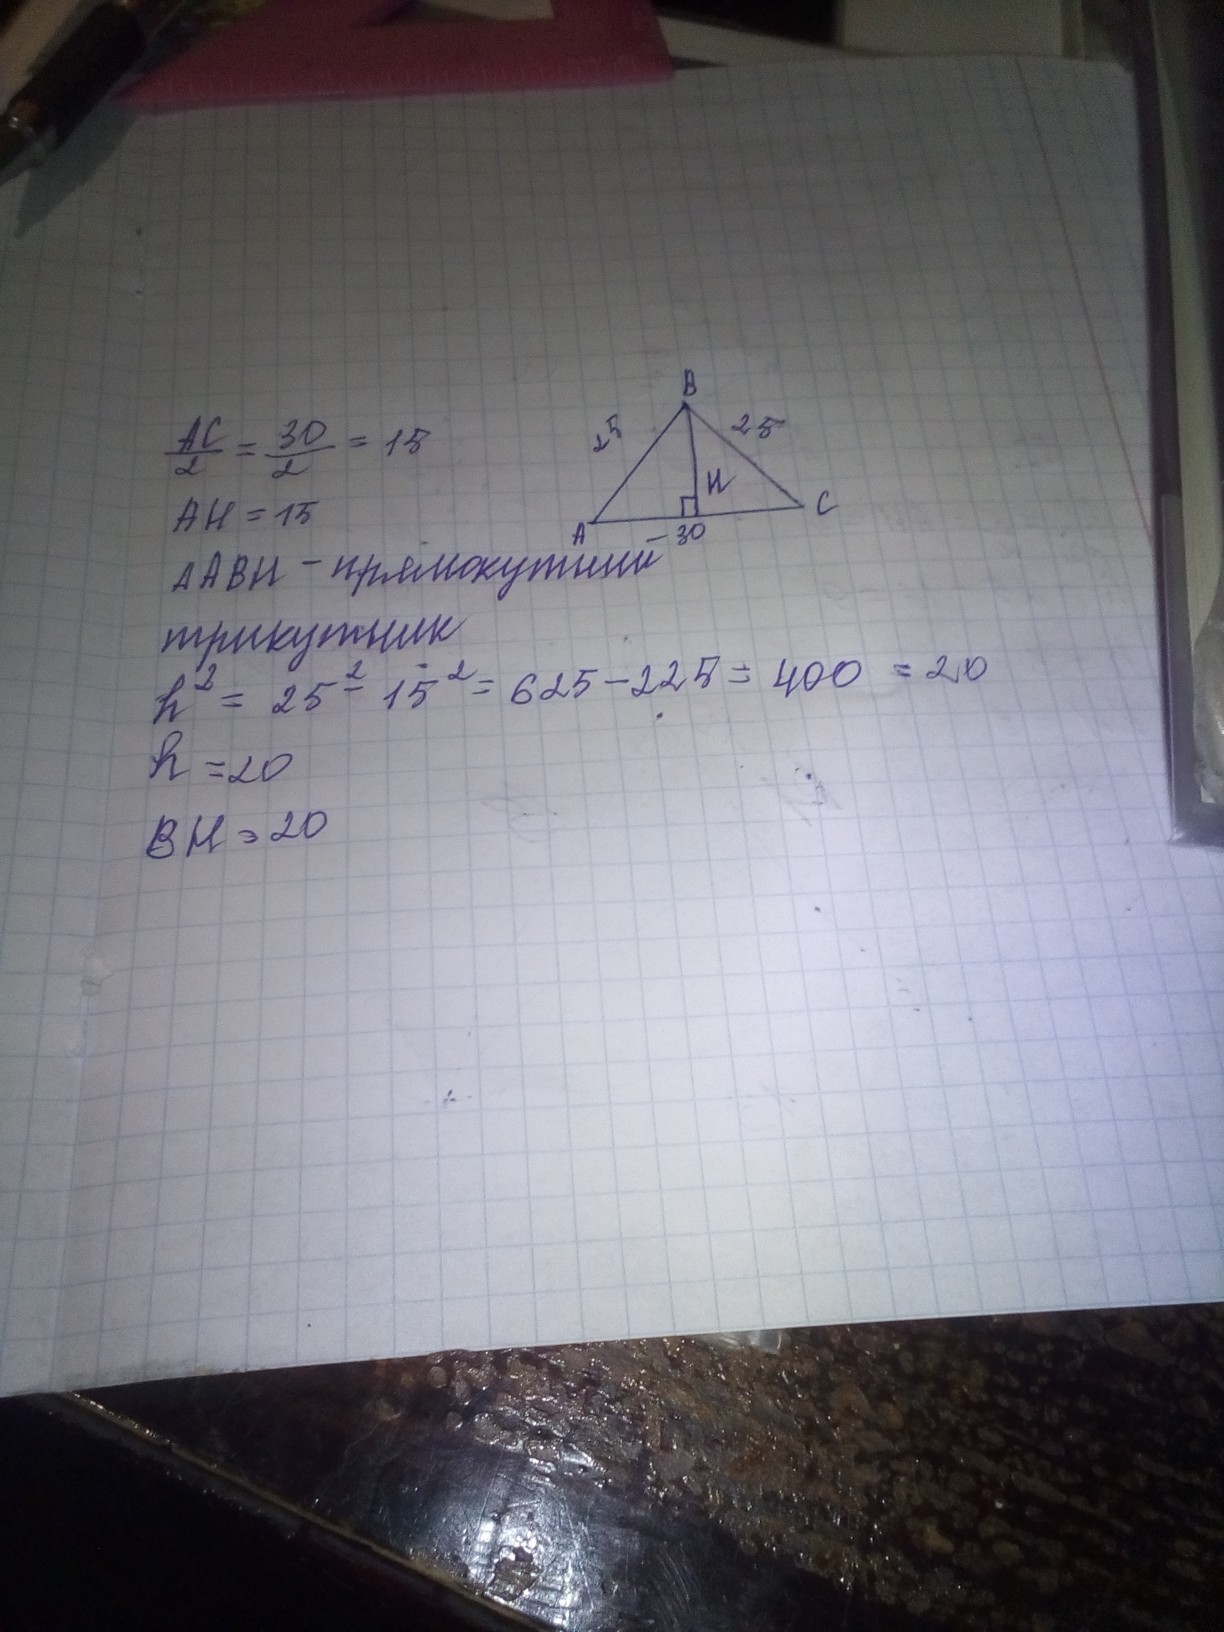 AC/2 = 30/2 = 15
AH = 15
ΔABH - прямокутний
трикутник
h² = 25² - 15² = 625 - 225 = 400 = 20
h = 20
BH = 20
B
25
25
H
A
C
30